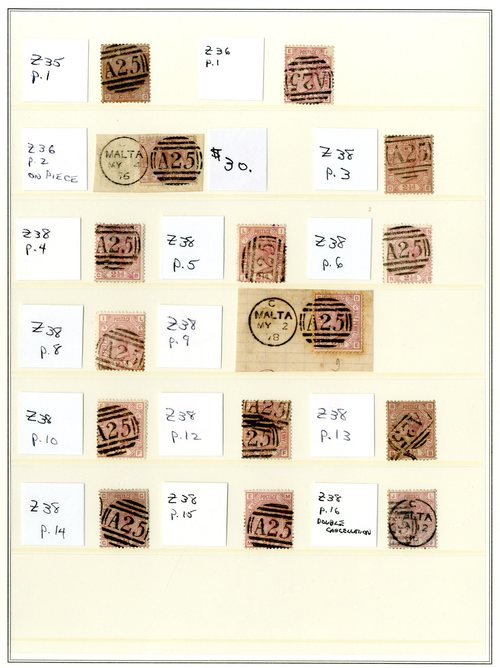 Z35
P.1
A25
Z36
P.1
A25
Z36
P.2
ON PIECE
MALTA
MY 4
76
A25
$30.
Z38
P.3
A25
Z38
P.4
A25
Z38
P.5
A25
Z38
P.6
A25
Z38
P.8
A25
Z38
P.9
C
MALTA
MY 2
78
A25
9
Z38
P.10
A25
Z38
P.12
25
Z38
P.13
A25
Z38
P.14
A25
Z38
P.15
A25
Z38
P.16
DOUBLE
CANCELLATION
C
MALTA